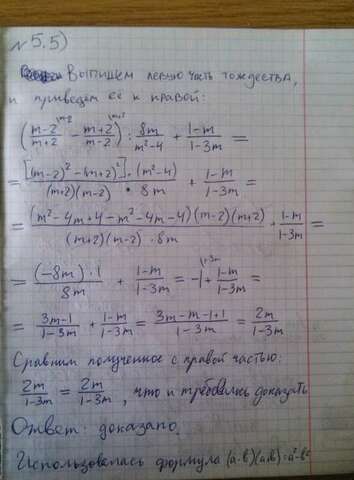 №5,5)
Выпишем левую часть тождества,
и приведём её к правой:
(m-2/m+2 ^(m-2 - m+2/m-2 ^(m+2) : 8m/m²-4 + 1-m/1-3m =
= [(m-2)² - (m+2)²]·(m²-4)/(m+2)(m-2) · 8m + 1-m/1-3m =
= (m²-4m+4-m²-4m-4)(m-2)(m+2)/(m+2)(m-2)·8m + 1-m/1-3m =
= (-8m)·1/8m + 1-m/1-3m = -1 ^(1-3m + 1-m/1-3m =
= 3m-1/1-3m + 1-m/1-3m = 3m-m-1+1/1-3m = 2m/1-3m
Сравним полученное с правой частью:
2m/1-3m = 2m/1-3m, что и требовалось доказать
Ответ: доказано.
Использовалась формула (a-b)(a+b)=a²-b²